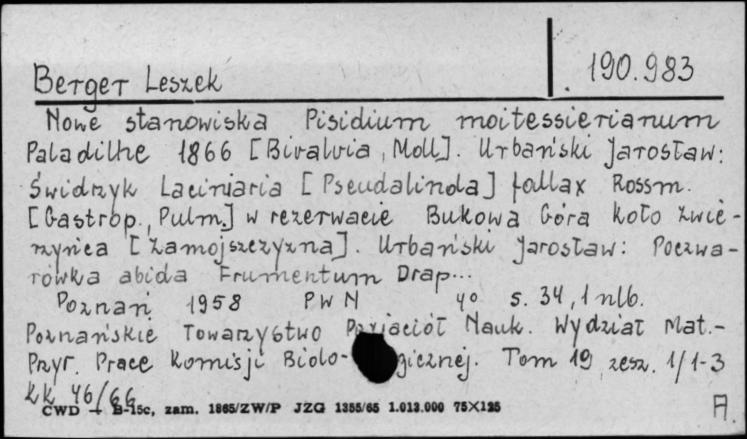 Berger Leszek
190.983
Nowe stanowiska Pisidium moitessierianum
Paladilhe 1866 [Bivalvia, Moll]. Urbański Jarosław:
Świdrzyk Laciniaria [Pseudalinda] fallax Rossm.
[Gastrop., Pulm.] w rezerwacie Bukowa Góra koło Zwie-
rzyńca [Zamojszczyzna]. Urbański Jarosław: Poczwa-
rówka abida Frumentum Drap...
Poznań 1958 PWN 4° s. 34, 1 nlb.
Poznańskie Towarzystwo Przyjaciół Nauk. Wydział Mat.-
Przyr. Prace Komisji Biolo-gicznej. Tom 19, zesz. 1/1-3
kk 46/66
CWD — B-15c, zam. 1865/ZW/P JZG 1355/65 1.013.000 75×125
A